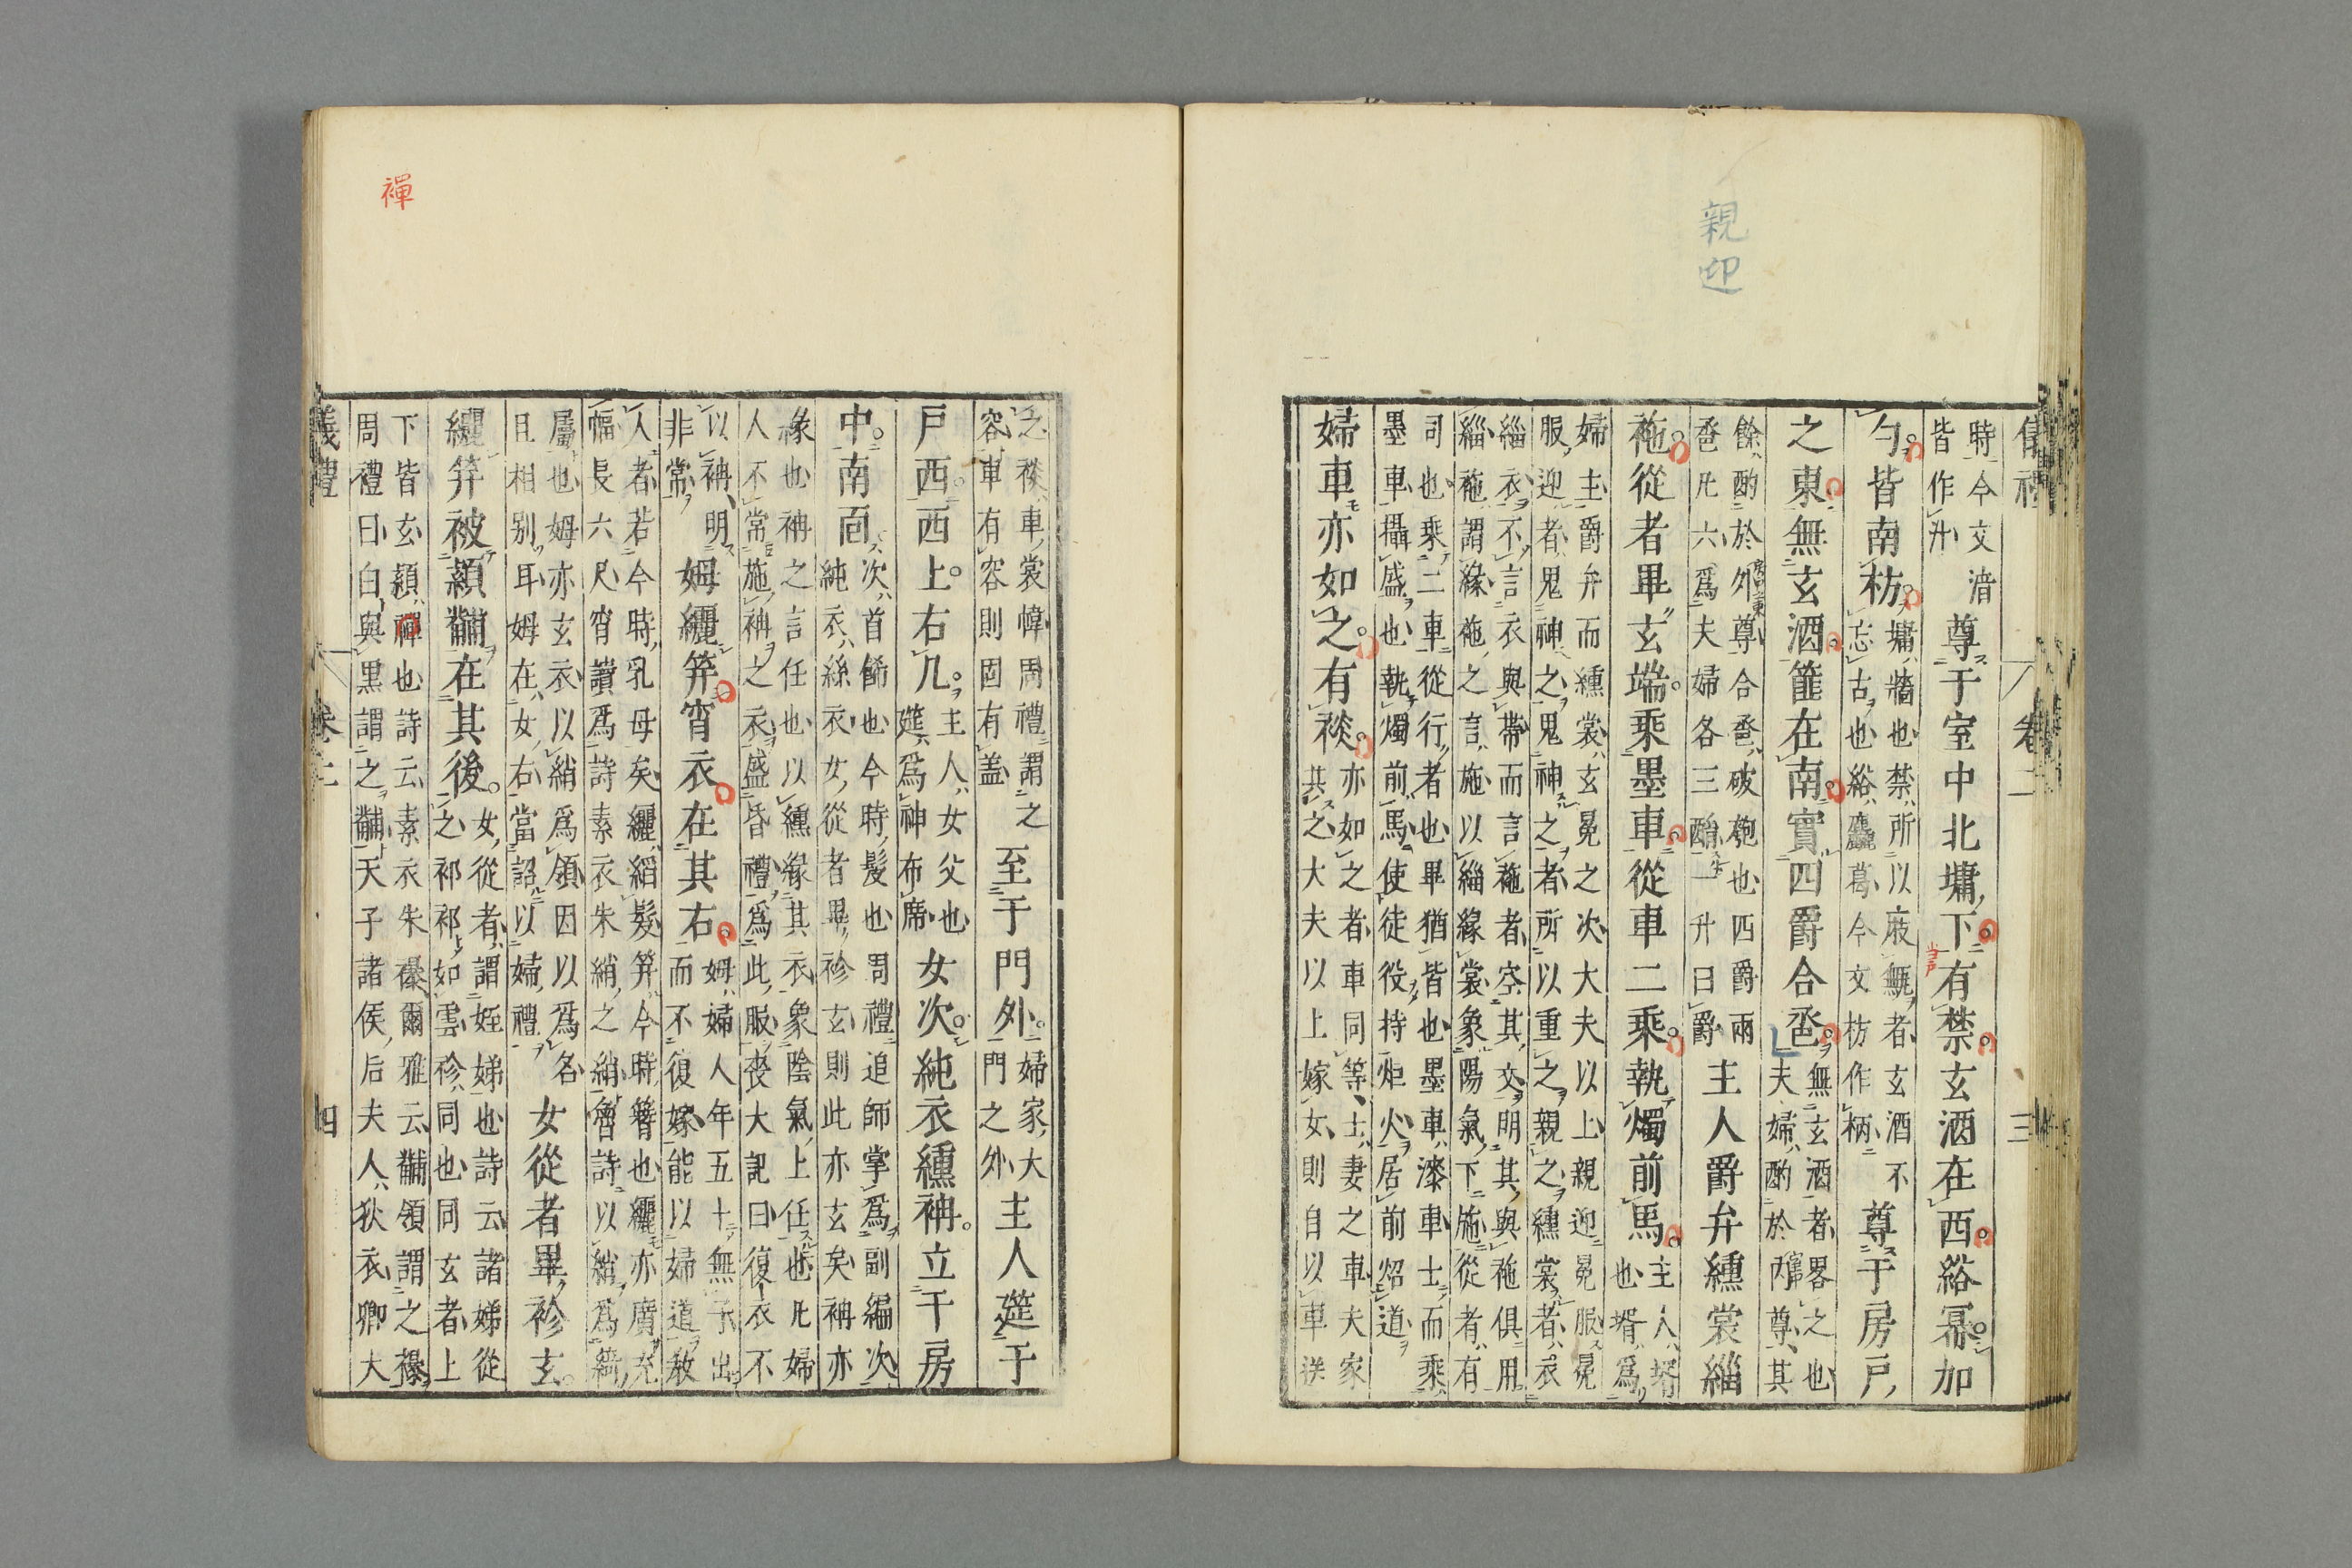 親迎
卷二
三
時今文湆
皆作汁
尊于室中北墉下有禁玄酒在西綌冪加
勺皆南枋
墉牆也禁所以庪甒者玄酒不
忘古也綌麤葛今文枋作柄
尊于房戶
之東無玄酒篚在南實四爵合巹
無玄酒者畧之也
夫婦酌於內尊其
餘酌於外尊合巹破匏也四爵兩
巹凡六爲夫婦各三酳一升曰爵
主人爵弁纁裳緇
袘從者畢玄端乘墨車從車二乘執燭前馬
主人壻
也壻爲
婦主爵弁而纁裳玄冕之次大夫以上親迎冕服冕
服迎者鬼神之鬼神之者所以重之親之纁裳者衣
緇衣不言衣與帶而言袘者空其文明其與袘俱用
緇袘謂緣袘之言施以緇緣裳象陽氣下施從者有
司也乘二車從行者也畢猶皆也墨車漆車士而乘
墨車攝盛也執燭前馬使徒役持炬火居前炤道
婦車亦如之有裧
亦如之者車同等士妻之車夫家
共之大夫以上嫁女則自以車送
之裧車裳幃周禮謂之
容車有容則固有盖
至于門外
婦家大
門之外
主人筵于
戶西西上右几
主人女父也
筵爲神布席
女次純衣纁袡立于房
中南靣
次首飾也今時髮也周禮追師掌爲副編次
純衣絲衣女從者畢袗玄則此亦玄矣袡亦
緣也袡之言任也以纁緣其衣象陰氣上任也凡婦
人不常施袡之衣盛昏禮爲此服喪大記曰復衣不
以袡明
非常
姆纚笄宵衣在其右
姆婦人年五十無子出
而不復嫁能以婦道敎
人者若今時乳母矣纚縚髮笄今時簪也纚亦廣充
幅長六尺宵讀爲詩素衣朱綃之綃魯詩以綃爲綺
屬也姆亦玄衣以綃爲領因以爲名
且相別耳姆在女右當詔以婦禮
女從者畢袗玄
纚笄被熲黼在其後
女從者謂姪娣也詩云諸娣從
之祁祁如雲袗同也同玄者上
下皆玄熲禪也詩云素衣朱襮爾雅云黼領謂之襮
周禮曰白與黑謂之黼天子諸侯后夫人狄衣卿大
襌
儀禮
卷二
四